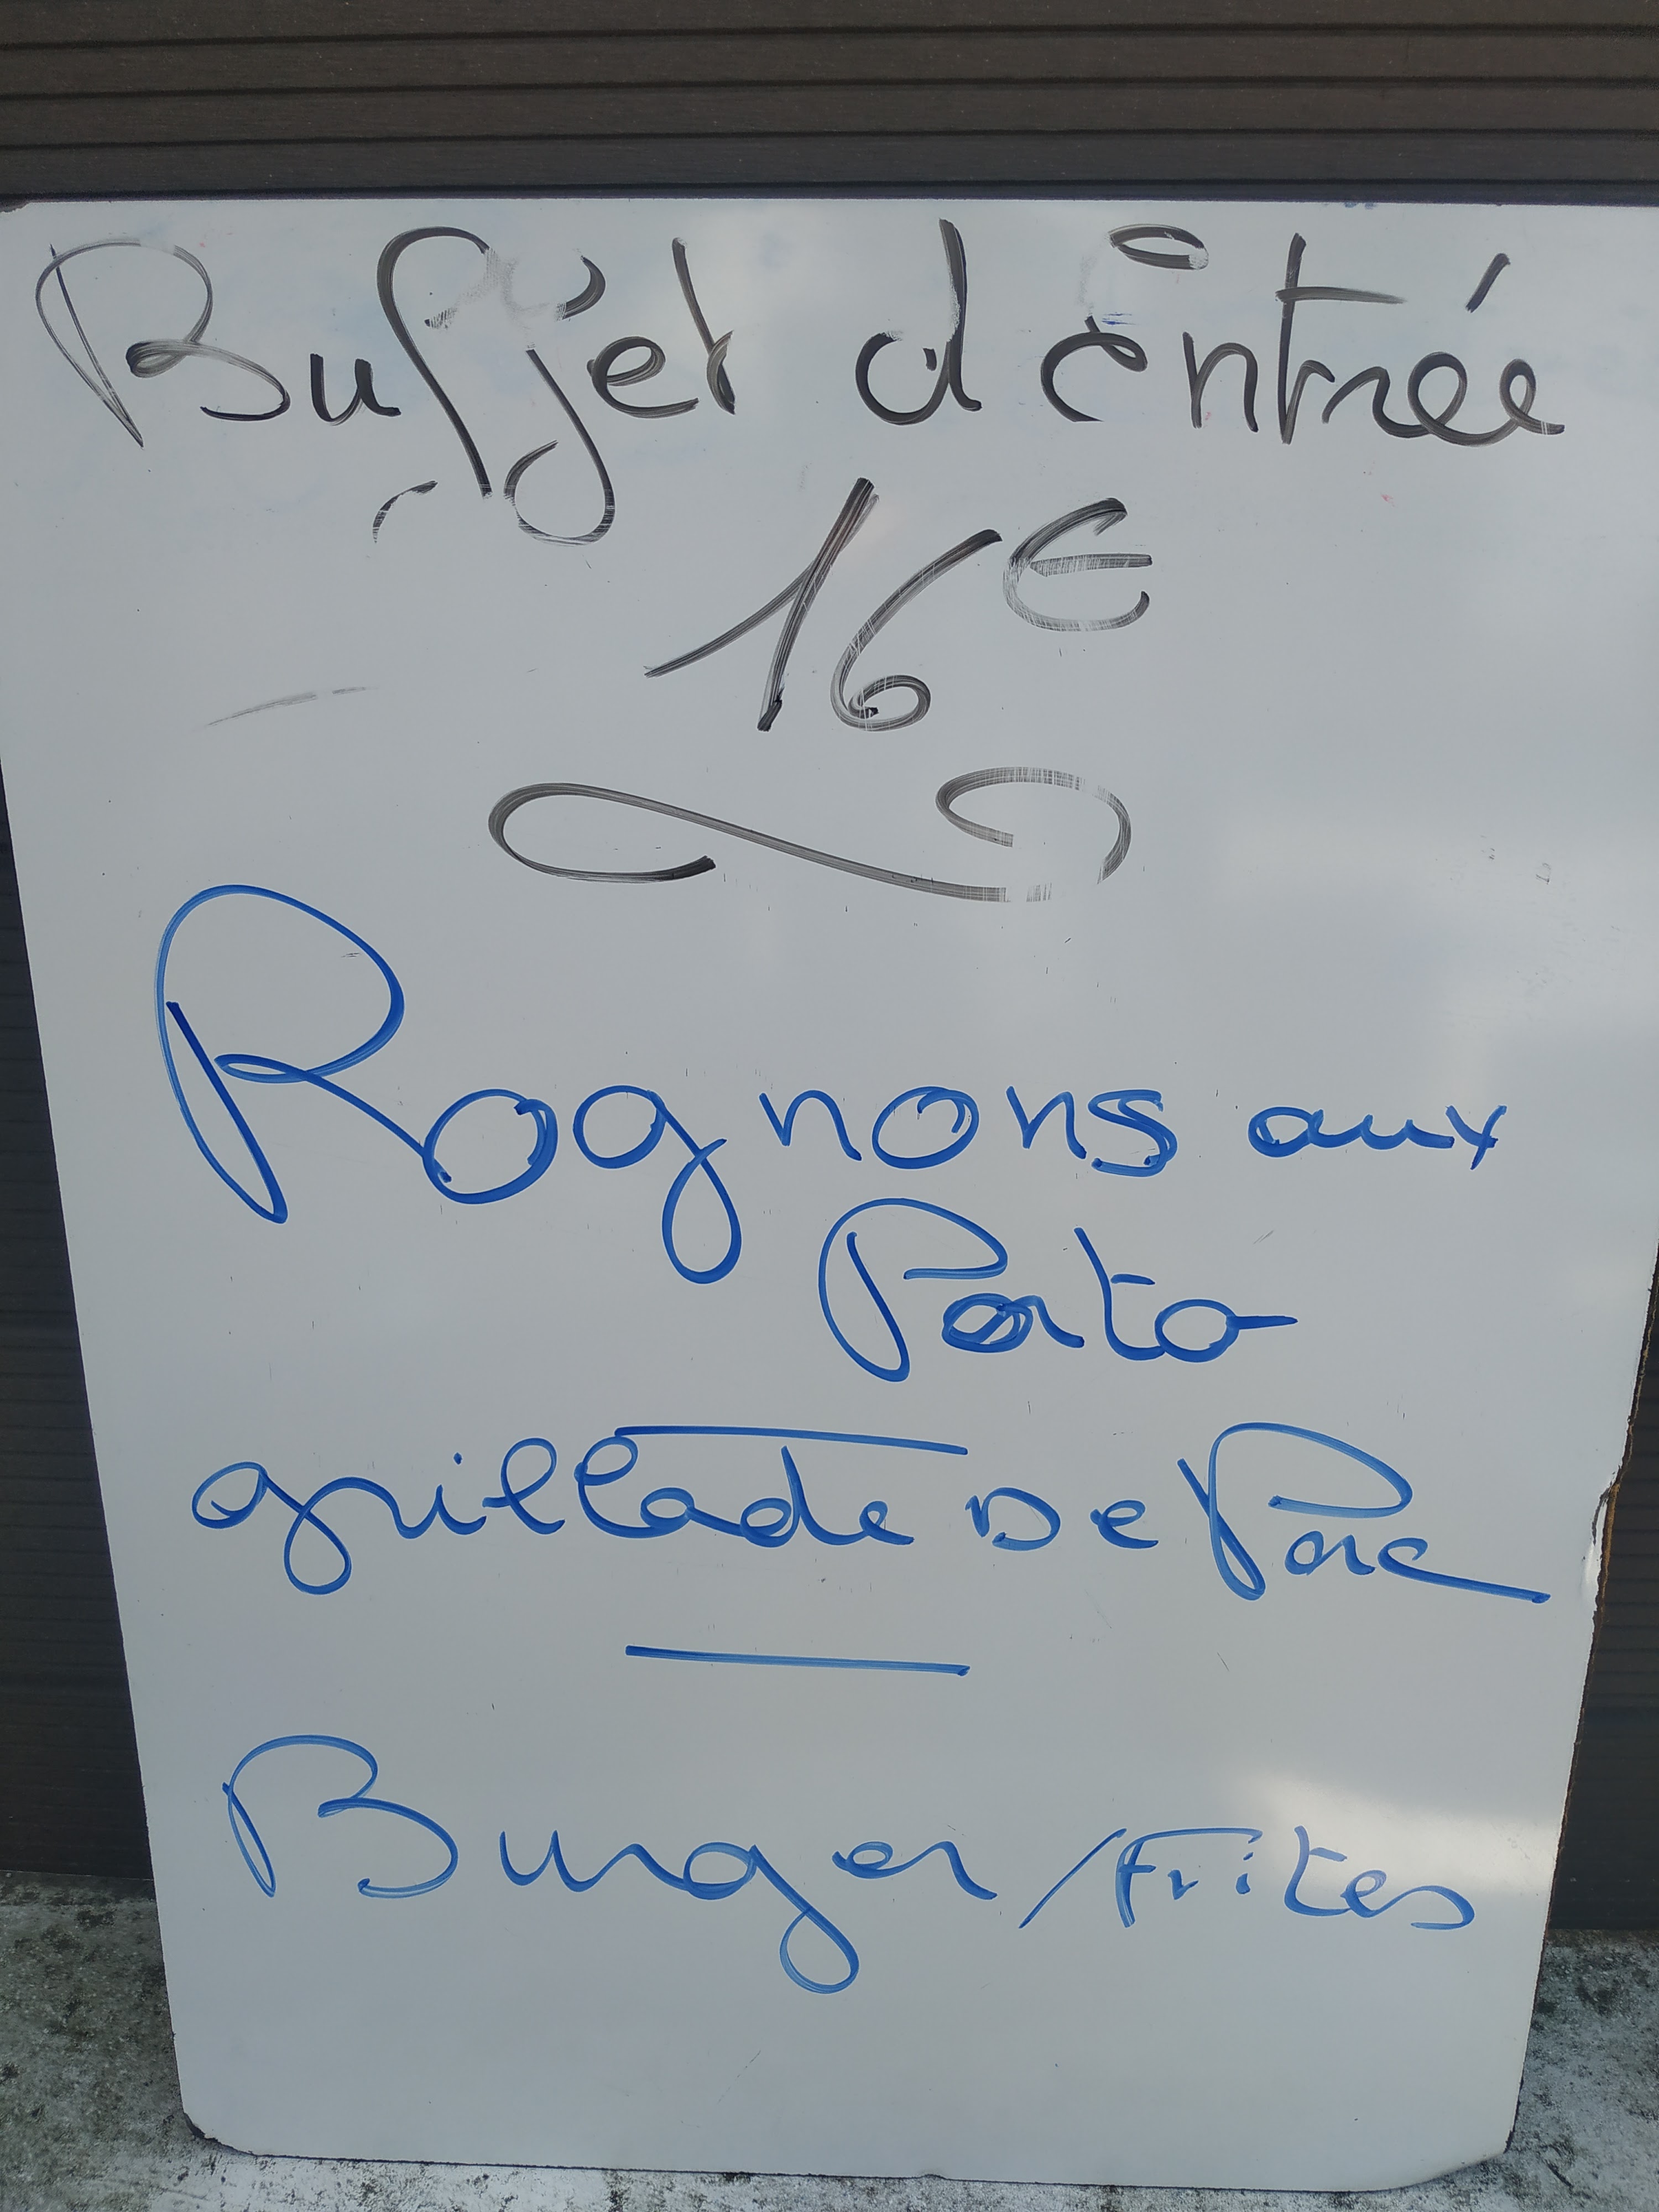 Buffet d'Entrée
16€
Rognons aux
Porto
grillade De Porc
Burger/Frites